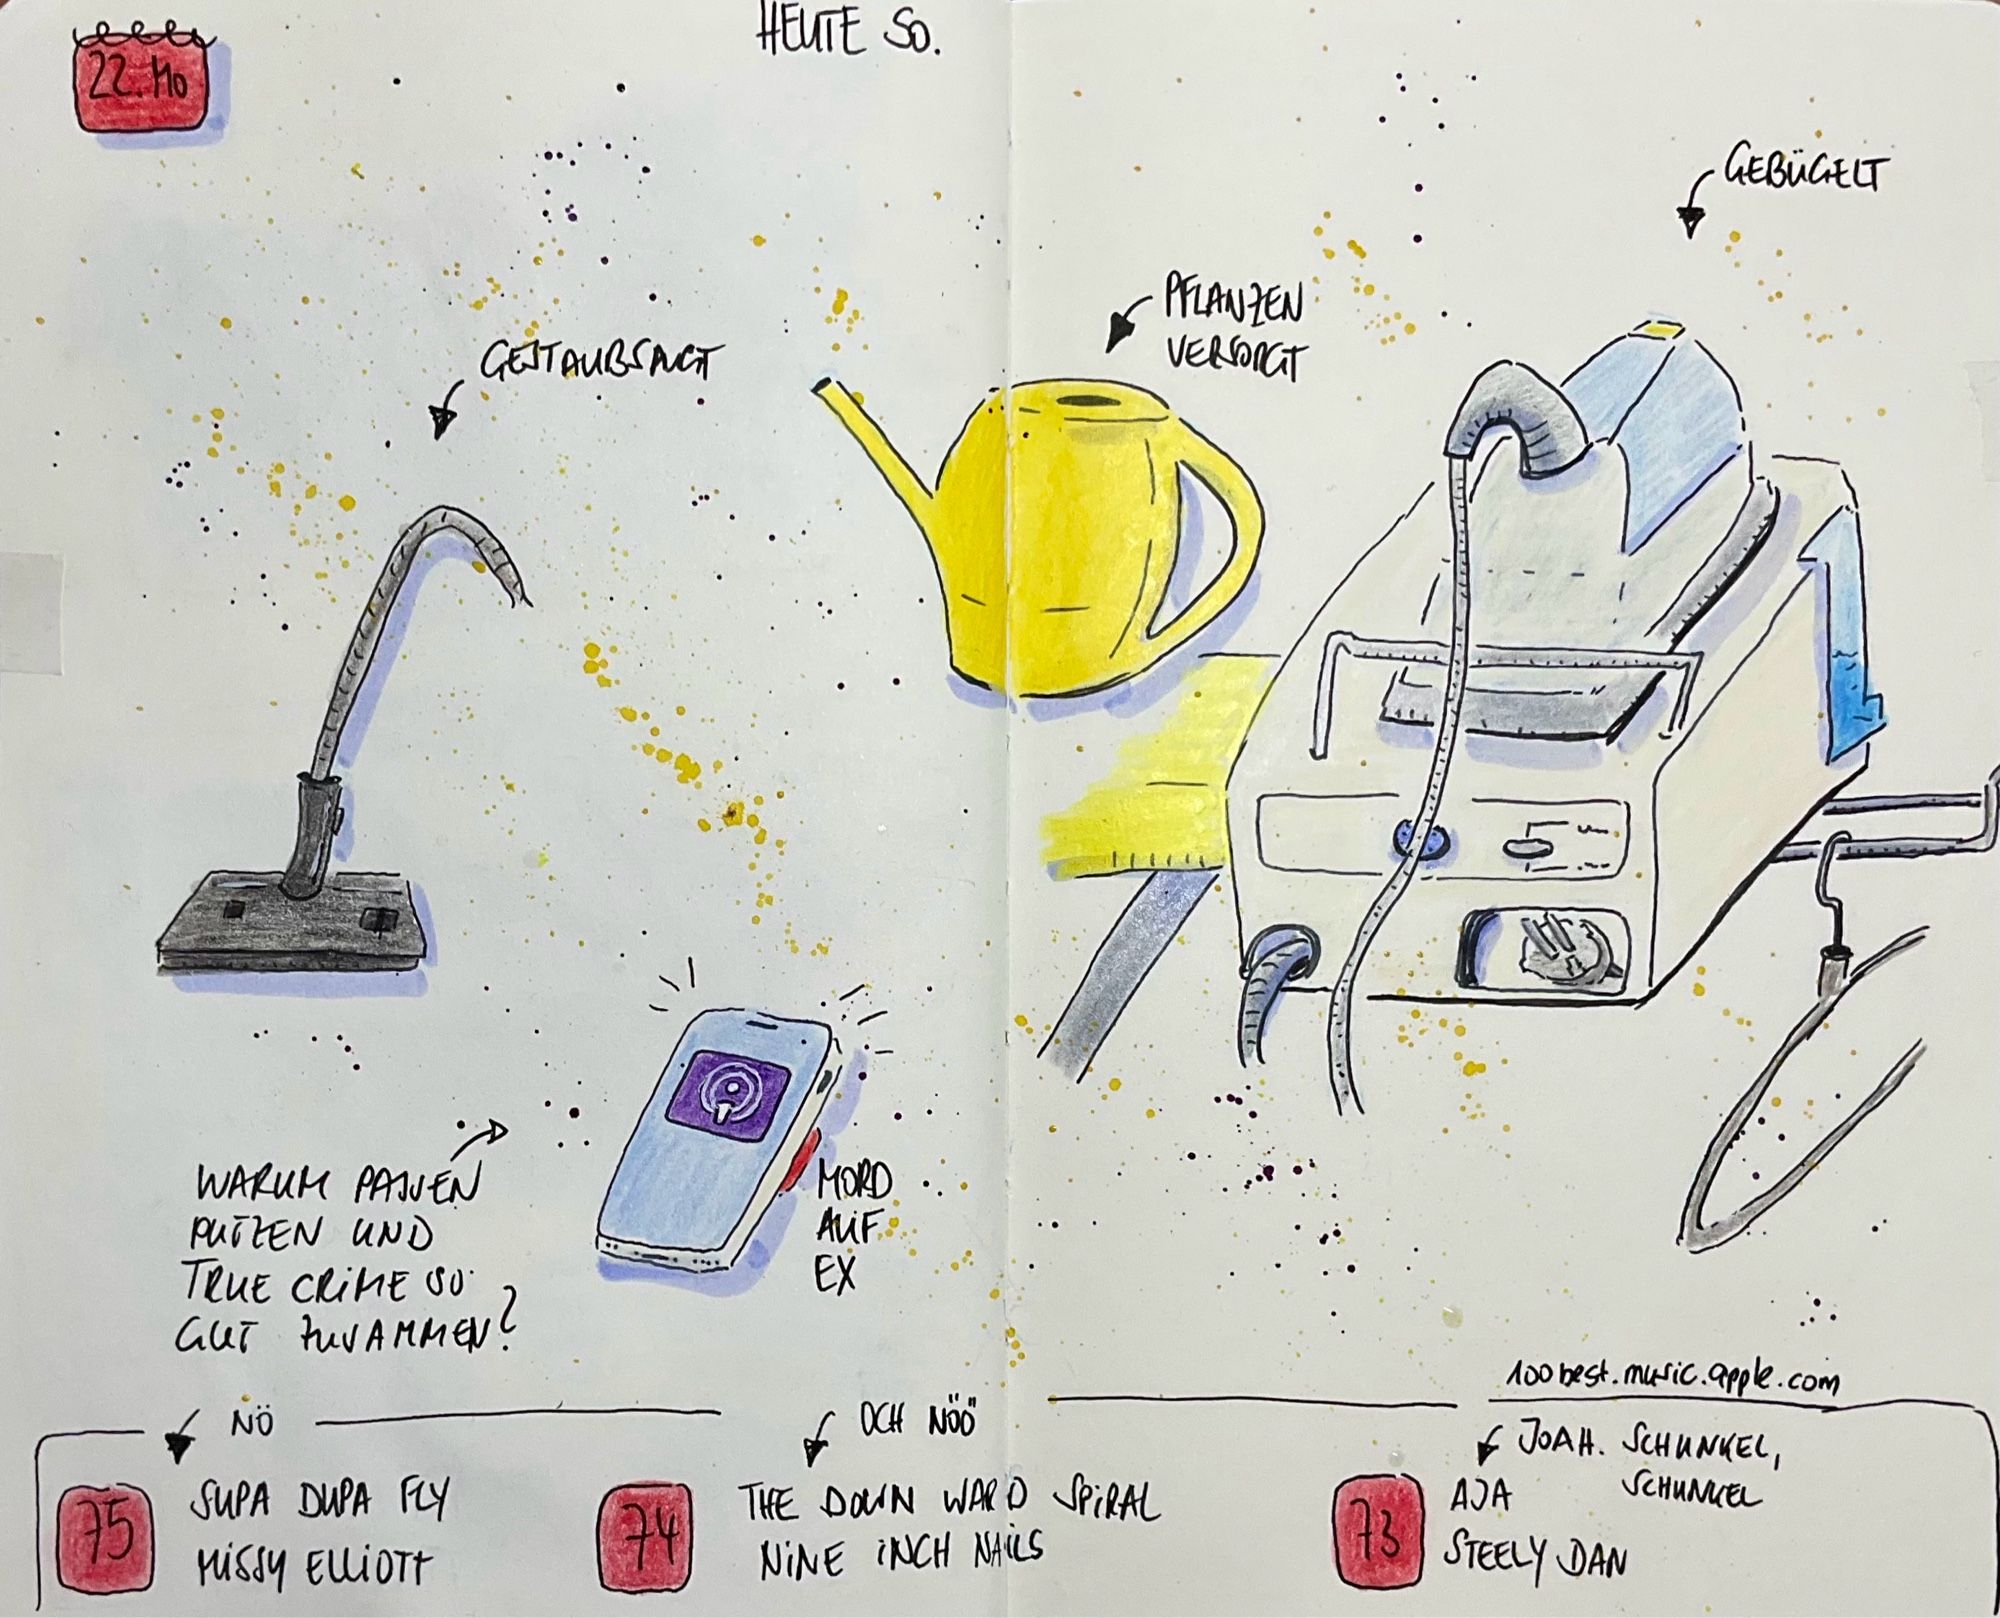 HEUTE SO.
22. Mo
GEBÜGELT
PFLANZEN
VERSORGT
GESTAUBSAUGT
WARUM PASSEN
PUTZEN UND
TRUE CRIME SO
GUT ZUSAMMEN?
MORD
AUF
EX
100best.music.apple.com
NÖ
75
SUPA DUPA FLY
MISSY ELLIOTT
OCH NÖÖ
74
THE DOWN WARD SPIRAL
NINE INCH NAILS
JOAH. SCHUNKEL,
SCHUNKEL
73
AJA
STEELY DAN